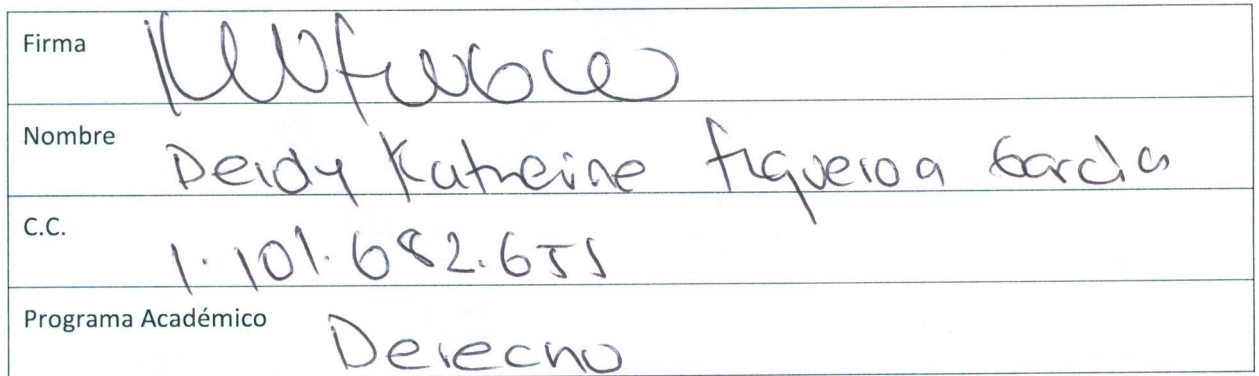 Firma
Nombre Deidy Katherine Figueroa Garcia
C.C. 1.101.682.651
Programa Académico Derecho